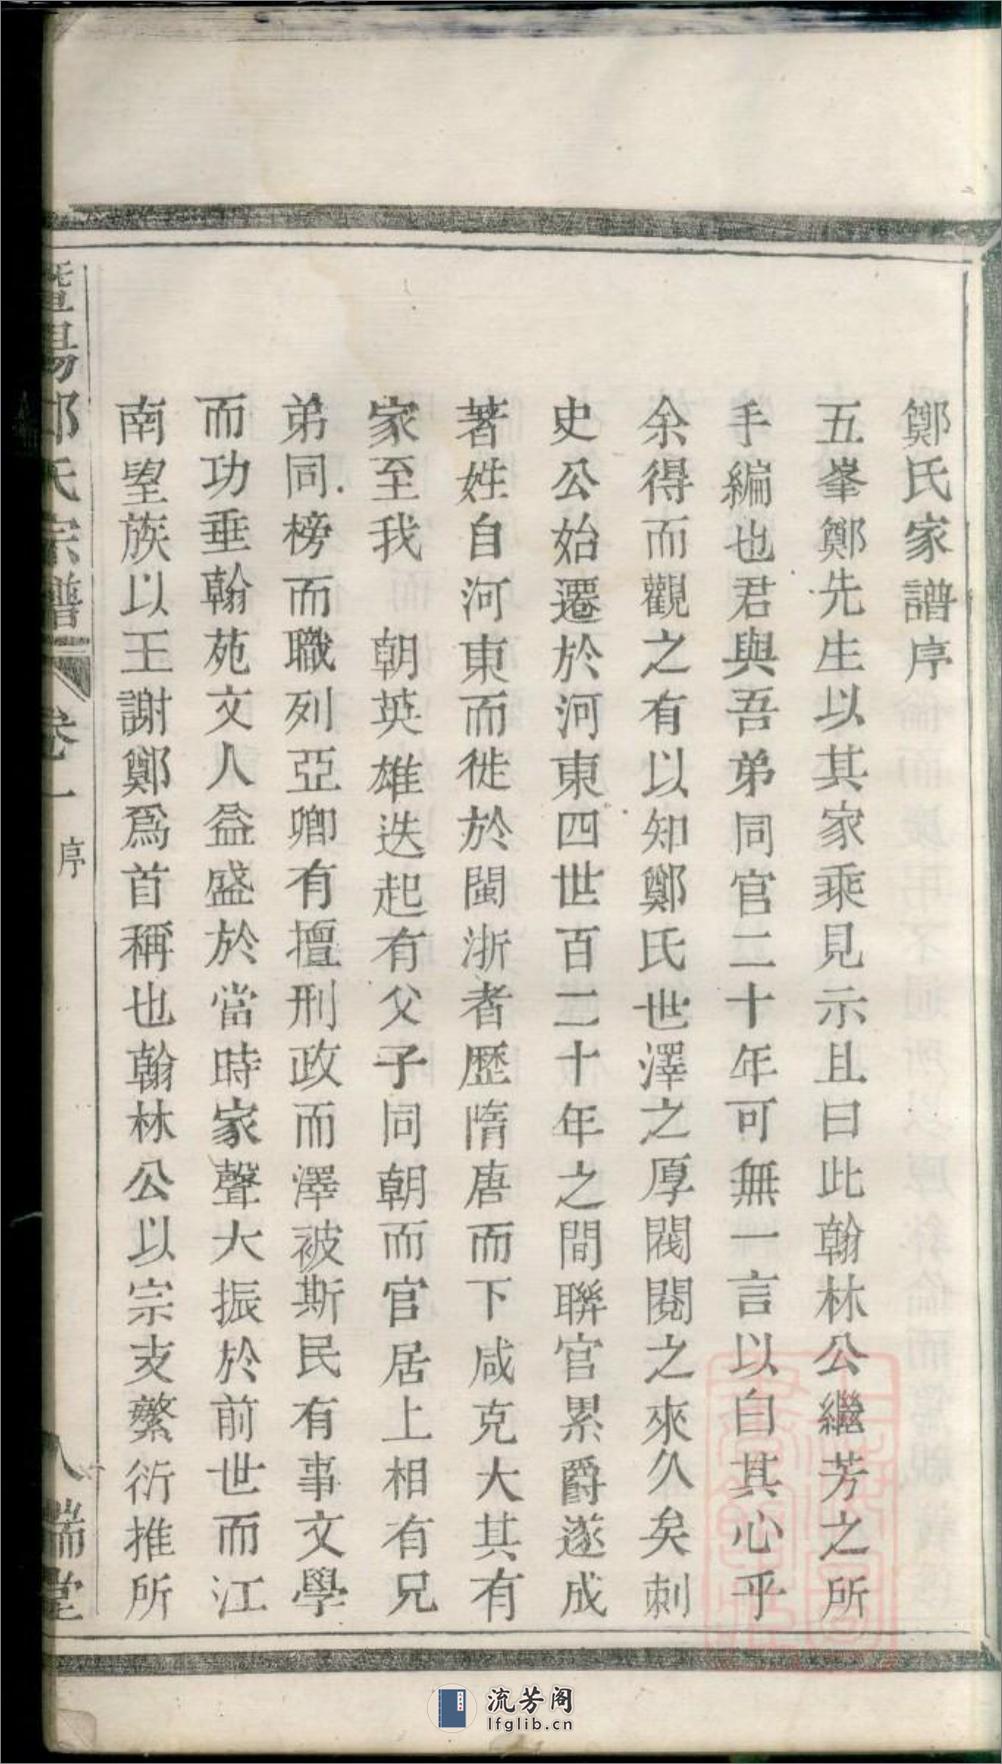 鄭氏家譜序
五峯鄭先生以其家乘見示且曰此翰林公繼芳之所
手編也君與吾弟同官二十年可無一言以白其心乎
余得而觀之有以知鄭氏世澤之厚閥閱之來久矣刺
史公始遷於河東四世百二十年之間聯官累爵遂成
著姓自河東而徙於閩浙者歷隋唐而下咸克大其有
家至我　朝英雄迭起有父子同朝而官居上相有兄
弟同榜而職列亞卿有擅刑政而澤被斯民有事文學
而功垂翰苑文人益盛於當時家聲大振於前世而江
南望族以王謝鄭爲首稱也翰林公以宗支蘩衍推所
暨陽鄭氏宗譜 卷一 序 八 瑞堂
流芳阁
lfglib.cn